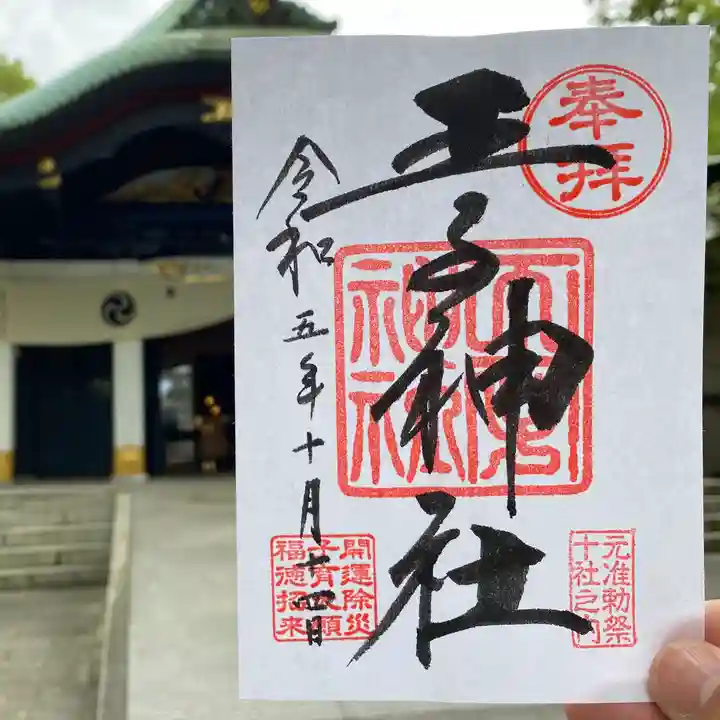 奉拝
王子神社
王子神社
元准勅祭
十社之内
令和五年十月十四日
開運除災
子育大願
福徳招来